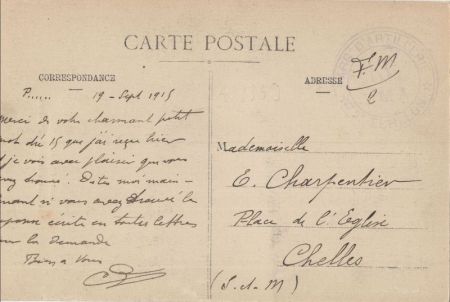 CARTE POSTALE
CORRESPONDANCE
ADRESSE
F. M
P...... 19 - Sept 1915
merci de votre charmant petit
mot du 15 que j'ai reçu hier
je vois avec plaisir que vous
trouvé. Dites moi main-
nant si vous avez trouvé la
réponse écrite en toutes lettres
sur la demande
Bien à Vous
Mademoiselle
E. Charpentier
Place de l'Eglise
Chelles
(S-et-M)